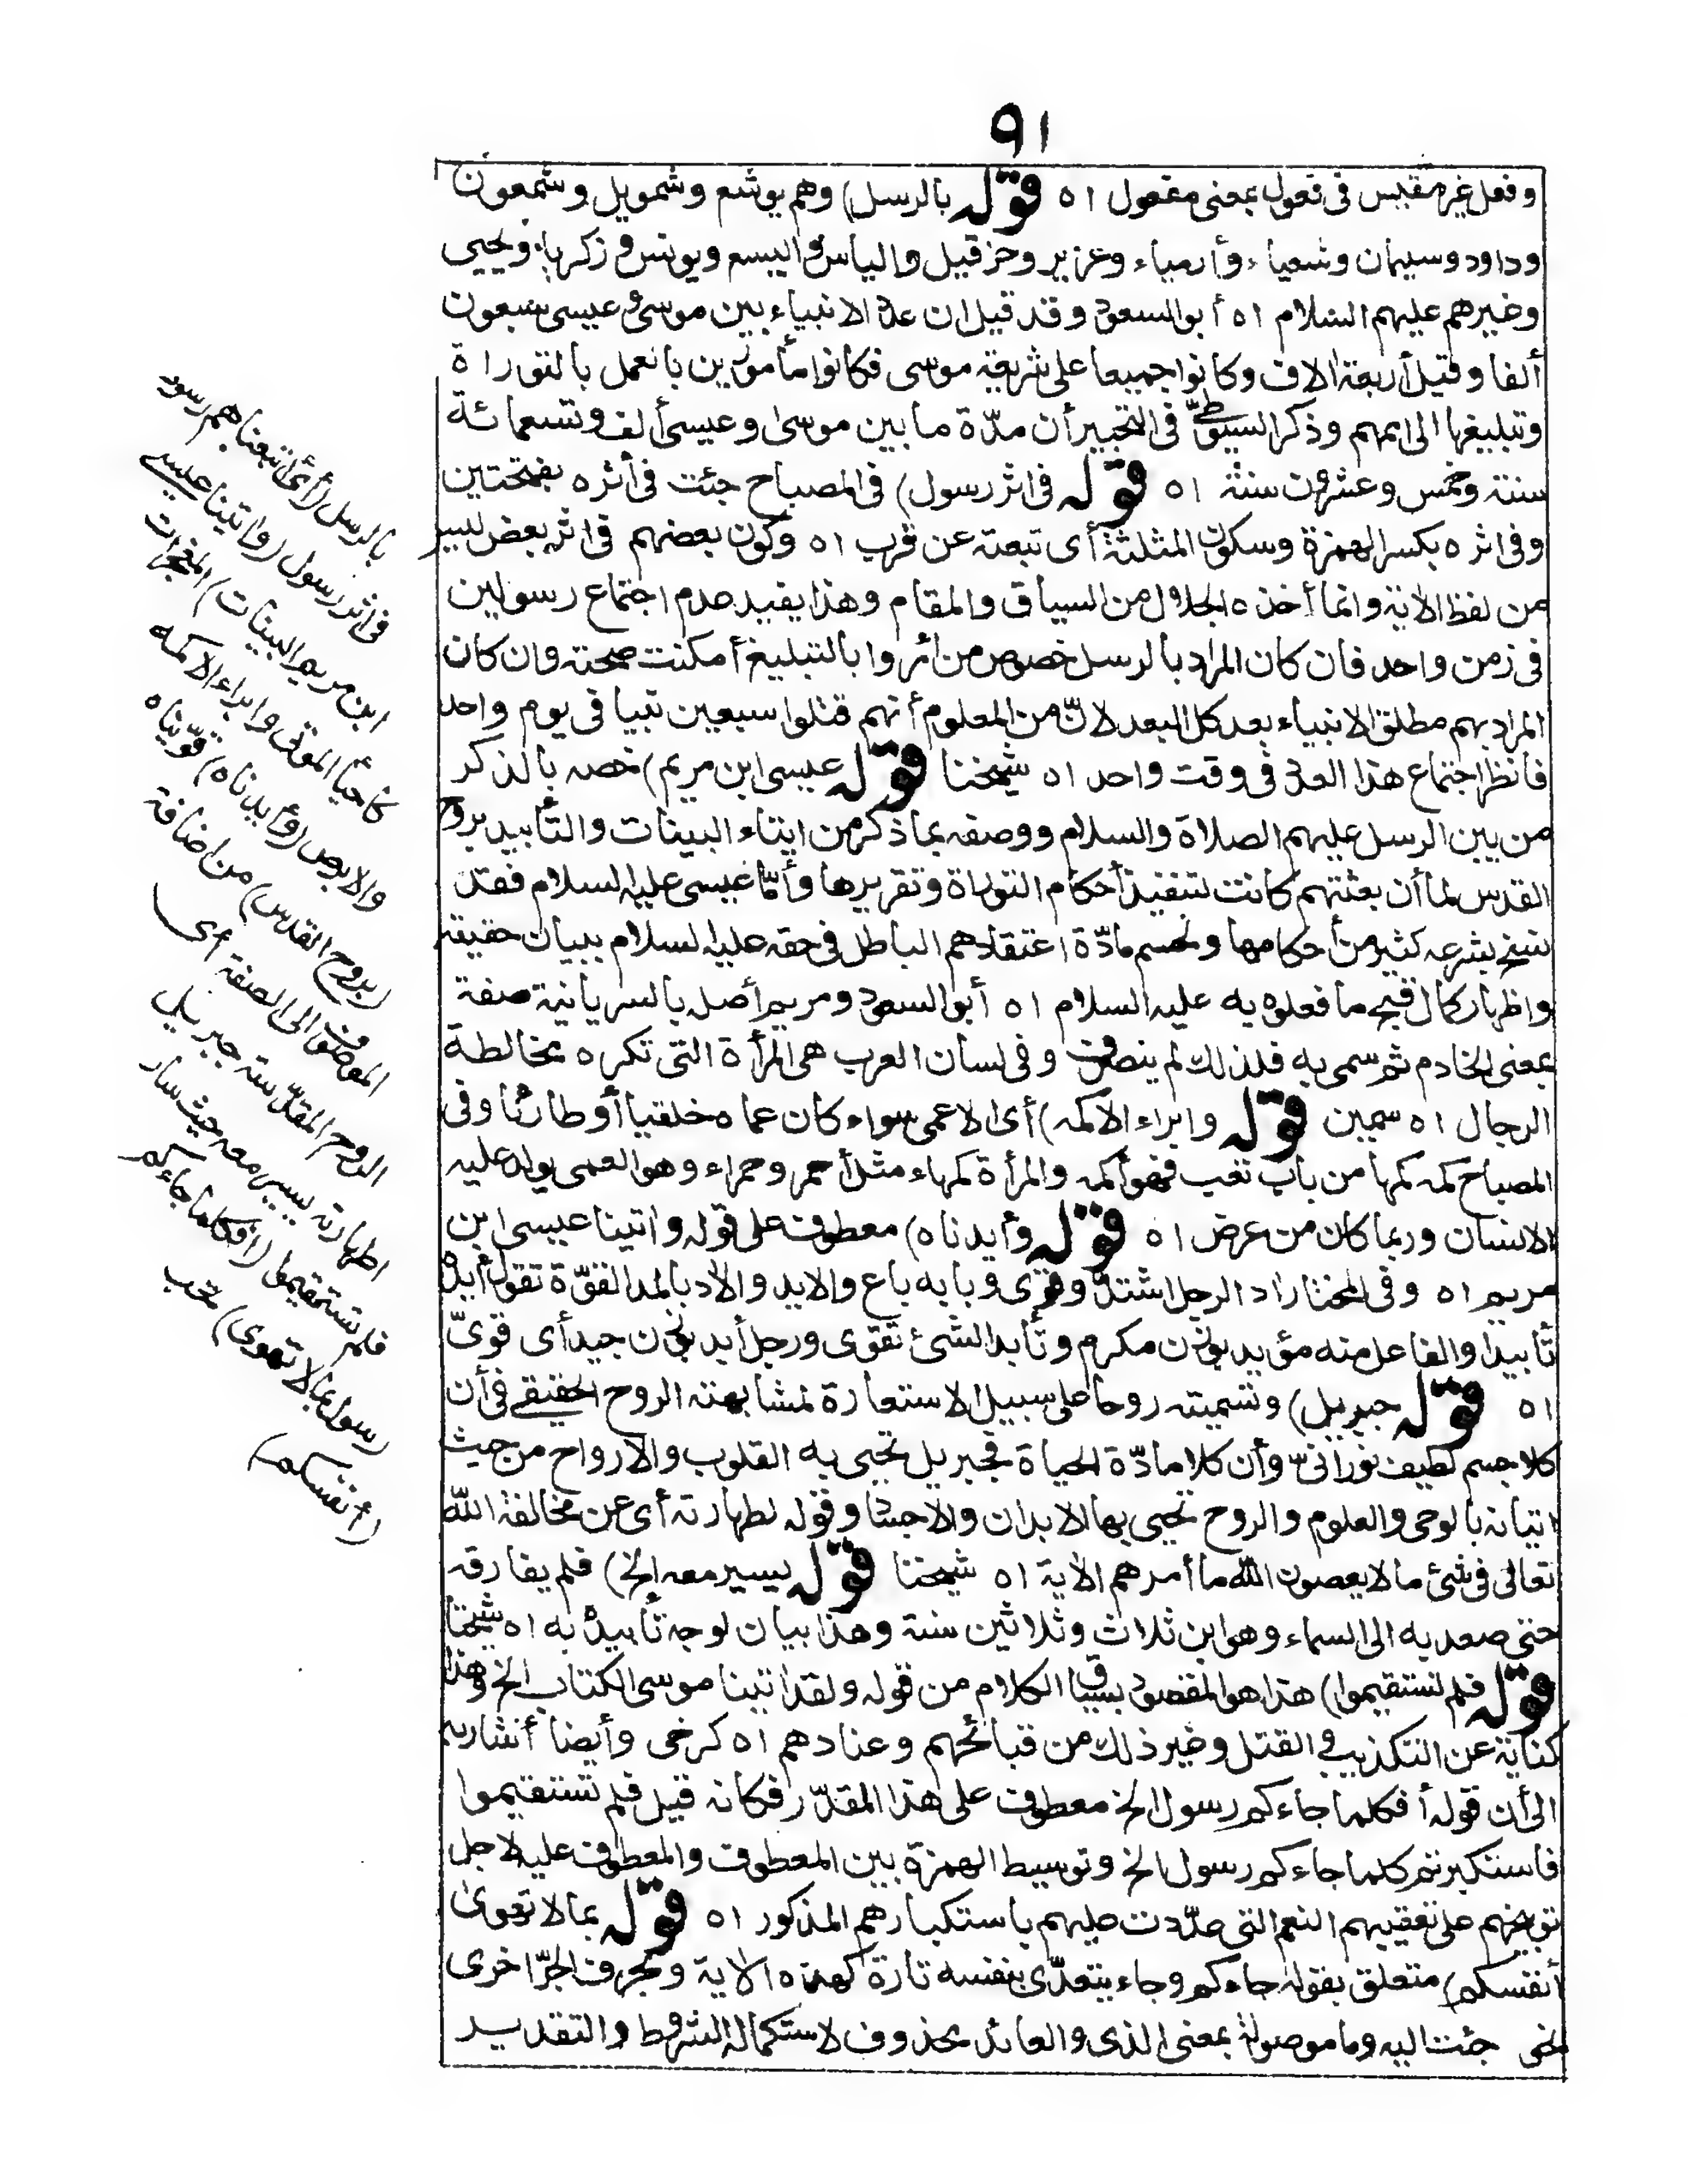 ٩١
وفعل غير مقيس فى فعول بمعنى مفعول اه قوله بالرسل) وهم يوشع وشمويل وشمعون
وداود وسيمان وشعياء وأرمياء وعزير وحزقيل والياس واليسع ويونس وزكريا ويحيى
وغيرهم عليهم السلام اه أبو السعود وقد قيل ان عدة الانبياء بين موسى وعيسى سبعون
ألفا وقيل أربعة الاف وكانوا جميعا على شريعة موسى فكانوا مأمورين بالعمل بالتوراة
وتبليغها الى اممهم وذكر السيوطى فى التحبير أن مدّة ما بين موسى وعيسى ألف وتسعمائة
سنة وخمس وعشرون سنة اه قوله فى اثر رسول) فى المصباح جئت فى أثره بفتحتين
وفى اثره بكسر الهمزة وسكون المثلثة أى تبعته عن قرب اه وكون بعضهم فى اثر بعض ليس
من لفظ الاية وانما أخذه الجلال من السياق والمقام وهذا يفيد عدم اجتماع رسولين
فى زمن واحد فان كان المراد بالرسل خصوص من أمروا بالتبليغ أمكنت صحته وان كان
المراد بهم مطلق الانبياء بعد كل البعد لانّ من المعلوم أنهم قتلوا سبعين نبيا فى يوم واحد
فانظر اجتماع هذا العدد فى وقت واحد اه شيخنا قوله عيسى ابن مريم) خصه بالذكر
من بين الرسل عليهم الصلاة والسلام ووصفه بما ذكر من ايتاء البينات والتأييد بروح
القدس لما أن بعثتهم كانت لتنفيذ أحكام التوراة وتقريرها وأمّا عيسى عليه السلام فقد
نسخ بشرعه كثير من أحكامها ولحسم مادّة اعتقادهم الباطل فى حقه عليه السلام ببيان حقيقته
واظهار كمال قبح ما فعلوه به عليه السلام اه أبو السعود ومريم أصله بالسريانية صفة
بمعنى الخادم ثم سمى به فلذلك لم ينصرف وفى لسان العرب هى المرأة التى تكره مخالطة
الرجال اه سمين قوله وابراء الاكمه) أى الاعمى سواء كان عماه خلقيا أو طارئا وفى
المصباح كمه كمها من باب تعب فهو أكمه والمرأة كمهاء مثل أحمر وحمراء وهو العمى يولد عليه
الانسان وربما كان من عرض اه قوله وأيدناه) معطوف على قوله واتينا عيسى ابن
مريم اه وفى المختار اد الرجل اشتدّ وقوى وبابه باع والايد والاد بالمد القوّة تقول أيده
تأييدا والفاعل منه مؤيد بوزن مكرم وتأيد الشئ تقوى ورجل أيد بوزن جيد أى قوىّ
اه قوله جبريل) وتسميته روحا على سبيل الاستعارة لمشابهته الروح الحقيقى فى أن
كلا جسم لطيف نورانىّ وأن كلا مادّة الحياة فجبريل تحيى به القلوب والارواح من حيث
اتيانه بالوحى والعلوم والروح تحيى بها الابدان والاجساد وقوله لطهارته أى عن مخالفة الله
تعالى فى شئ ما لا يعصون الله ما أمرهم الاية اه شيخنا قوله يسير معه الخ) فلم يفارقه
حتى صعد به الى السماء وهو ابن ثلاث وثلاثين سنة وهذا بيان لوجه تأييده به اه شيخنا
قوله فلم تستقيموا) هذا هو المقصود بسياق الكلام من قوله ولقد اتينا موسى الكتاب الخ وهذا
كناية عن التكذيب والقتل وغير ذلك من قبائحهم وعنادهم اه كرخى وأيضا أشار به
الى أن قوله أفكلما جاءكم رسول الخ معطوف على هذا المقدّر فكانه قيل فلم تستقيموا
فاستكبرتم كلما جاءكم رسول الخ وتوسيط الهمزة بين المعطوف والمعطوف عليه لاجل
توبيخهم على تعقيبهم النعم التى عدّدت عليهم باستكبارهم المذكور اه قوله بما لا تهوى
أنفسكم) متعلق بقوله جاءكم وجاء يتعدّى بنفسه تارة كهذه الاية وبحرف الجرّ اخرى
نحو جئت اليه وما موصولة بمعنى الذى والعائد محذوف لاستكمال الشروط والتقدير
بالرسل) أى اتبعناهم رسولا
فى اثر رسول (واتينا عيسى
ابن مريم البينات) المعجزات
كاحياء الموتى وابراء الاكمه
والابرص (وأيدناه) قوّيناه
(بروح القدس) من اضافة
الموصوف الى الصفة أى
الروح المقدّسة جبريل
لطهارته يسير معه حيث سار
فلم تستقيموا (أفكلما جاءكم
رسول بما لا تهوى) تحب
(أنفسكم)